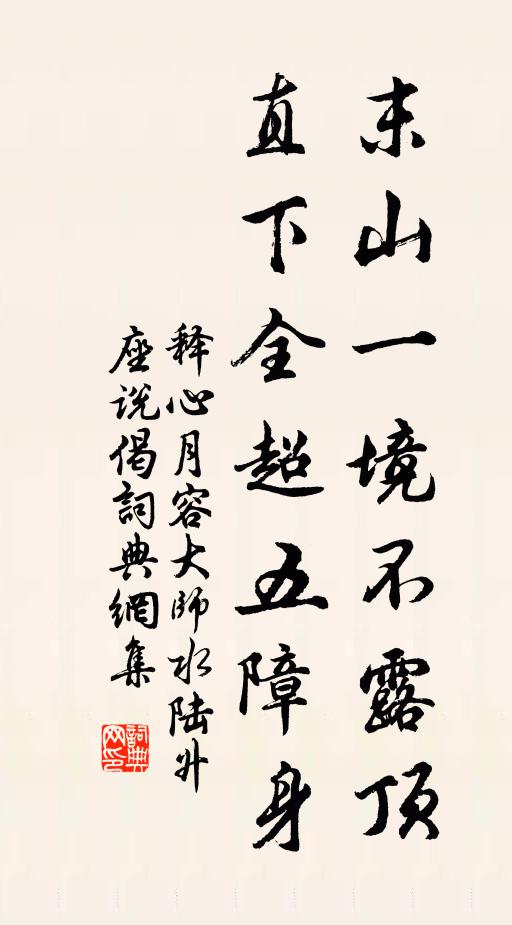 末山一境不露顶
直下全超五障身
释心月容大师水陆升
座说偈詞典網集
詞典网印